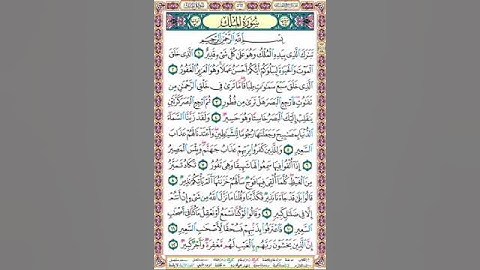 سُورَةُ الْمُلْكِ
بِسْمِ اللَّهِ الرَّحْمَٰنِ الرَّحِيمِ
تَبَٰرَكَ الَّذِي بِيَدِهِ الْمُلْكُ وَهُوَ عَلَىٰ كُلِّ شَيْءٍ قَدِيرٌ الَّذِي خَلَقَ
الْمَوْتَ وَالْحَيَوٰةَ لِيَبْلُوَكُمْ أَيُّكُمْ أَحْسَنُ عَمَلًا وَهُوَ الْعَزِيزُ الْغَفُورُ
الَّذِي خَلَقَ سَبْعَ سَمَٰوَاتٍ طِبَاقًا مَا تَرَىٰ فِي خَلْقِ الرَّحْمَٰنِ مِنْ
تَفَٰوُتٍ فَارْجِعِ الْبَصَرَ هَلْ تَرَىٰ مِنْ فُطُورٍ ثُمَّ ارْجِعِ الْبَصَرَ كَرَّتَيْنِ
يَنْقَلِبْ إِلَيْكَ الْبَصَرُ خَاسِئًا وَهُوَ حَسِيرٌ وَلَقَدْ زَيَّنَّا السَّمَاءَ
الدُّنْيَا بِمَصَٰبِيحَ وَجَعَلْنَٰهَا رُجُومًا لِلشَّيَٰطِينِ وَأَعْتَدْنَا لَهُمْ عَذَابَ
السَّعِيرِ وَلِلَّذِينَ كَفَرُوا بِرَبِّهِمْ عَذَابُ جَهَنَّمَ وَبِئْسَ الْمَصِيرُ
إِذَا أُلْقُوا فِيهَا سَمِعُوا لَهَا شَهِيقًا وَهِيَ تَفُورُ تَكَادُ تَمَيَّزُ
مِنَ الْغَيْظِ كُلَّمَا أُلْقِيَ فِيهَا فَوْجٌ سَأَلَهُمْ خَزَنَتُهَا أَلَمْ يَأْتِكُمْ نَذِيرٌ
قَالُوا بَلَىٰ قَدْ جَاءَنَا نَذِيرٌ فَكَذَّبْنَا وَقُلْنَا مَا نَزَّلَ اللَّهُ مِنْ شَيْءٍ إِنْ أَنْتُمْ
إِلَّا فِي ضَلَٰلٍ كَبِيرٍ وَقَالُوا لَوْ كُنَّا نَسْمَعُ أَوْ نَعْقِلُ مَا كُنَّا فِي أَصْحَٰبِ
السَّعِيرِ فَاعْتَرَفُوا بِذَنْبِهِمْ فَسُحْقًا لِأَصْحَٰبِ السَّعِيرِ
إِنَّ الَّذِينَ يَخْشَوْنَ رَبَّهُمْ بِالْغَيْبِ لَهُمْ مَغْفِرَةٌ وَأَجْرٌ كَبِيرٌ